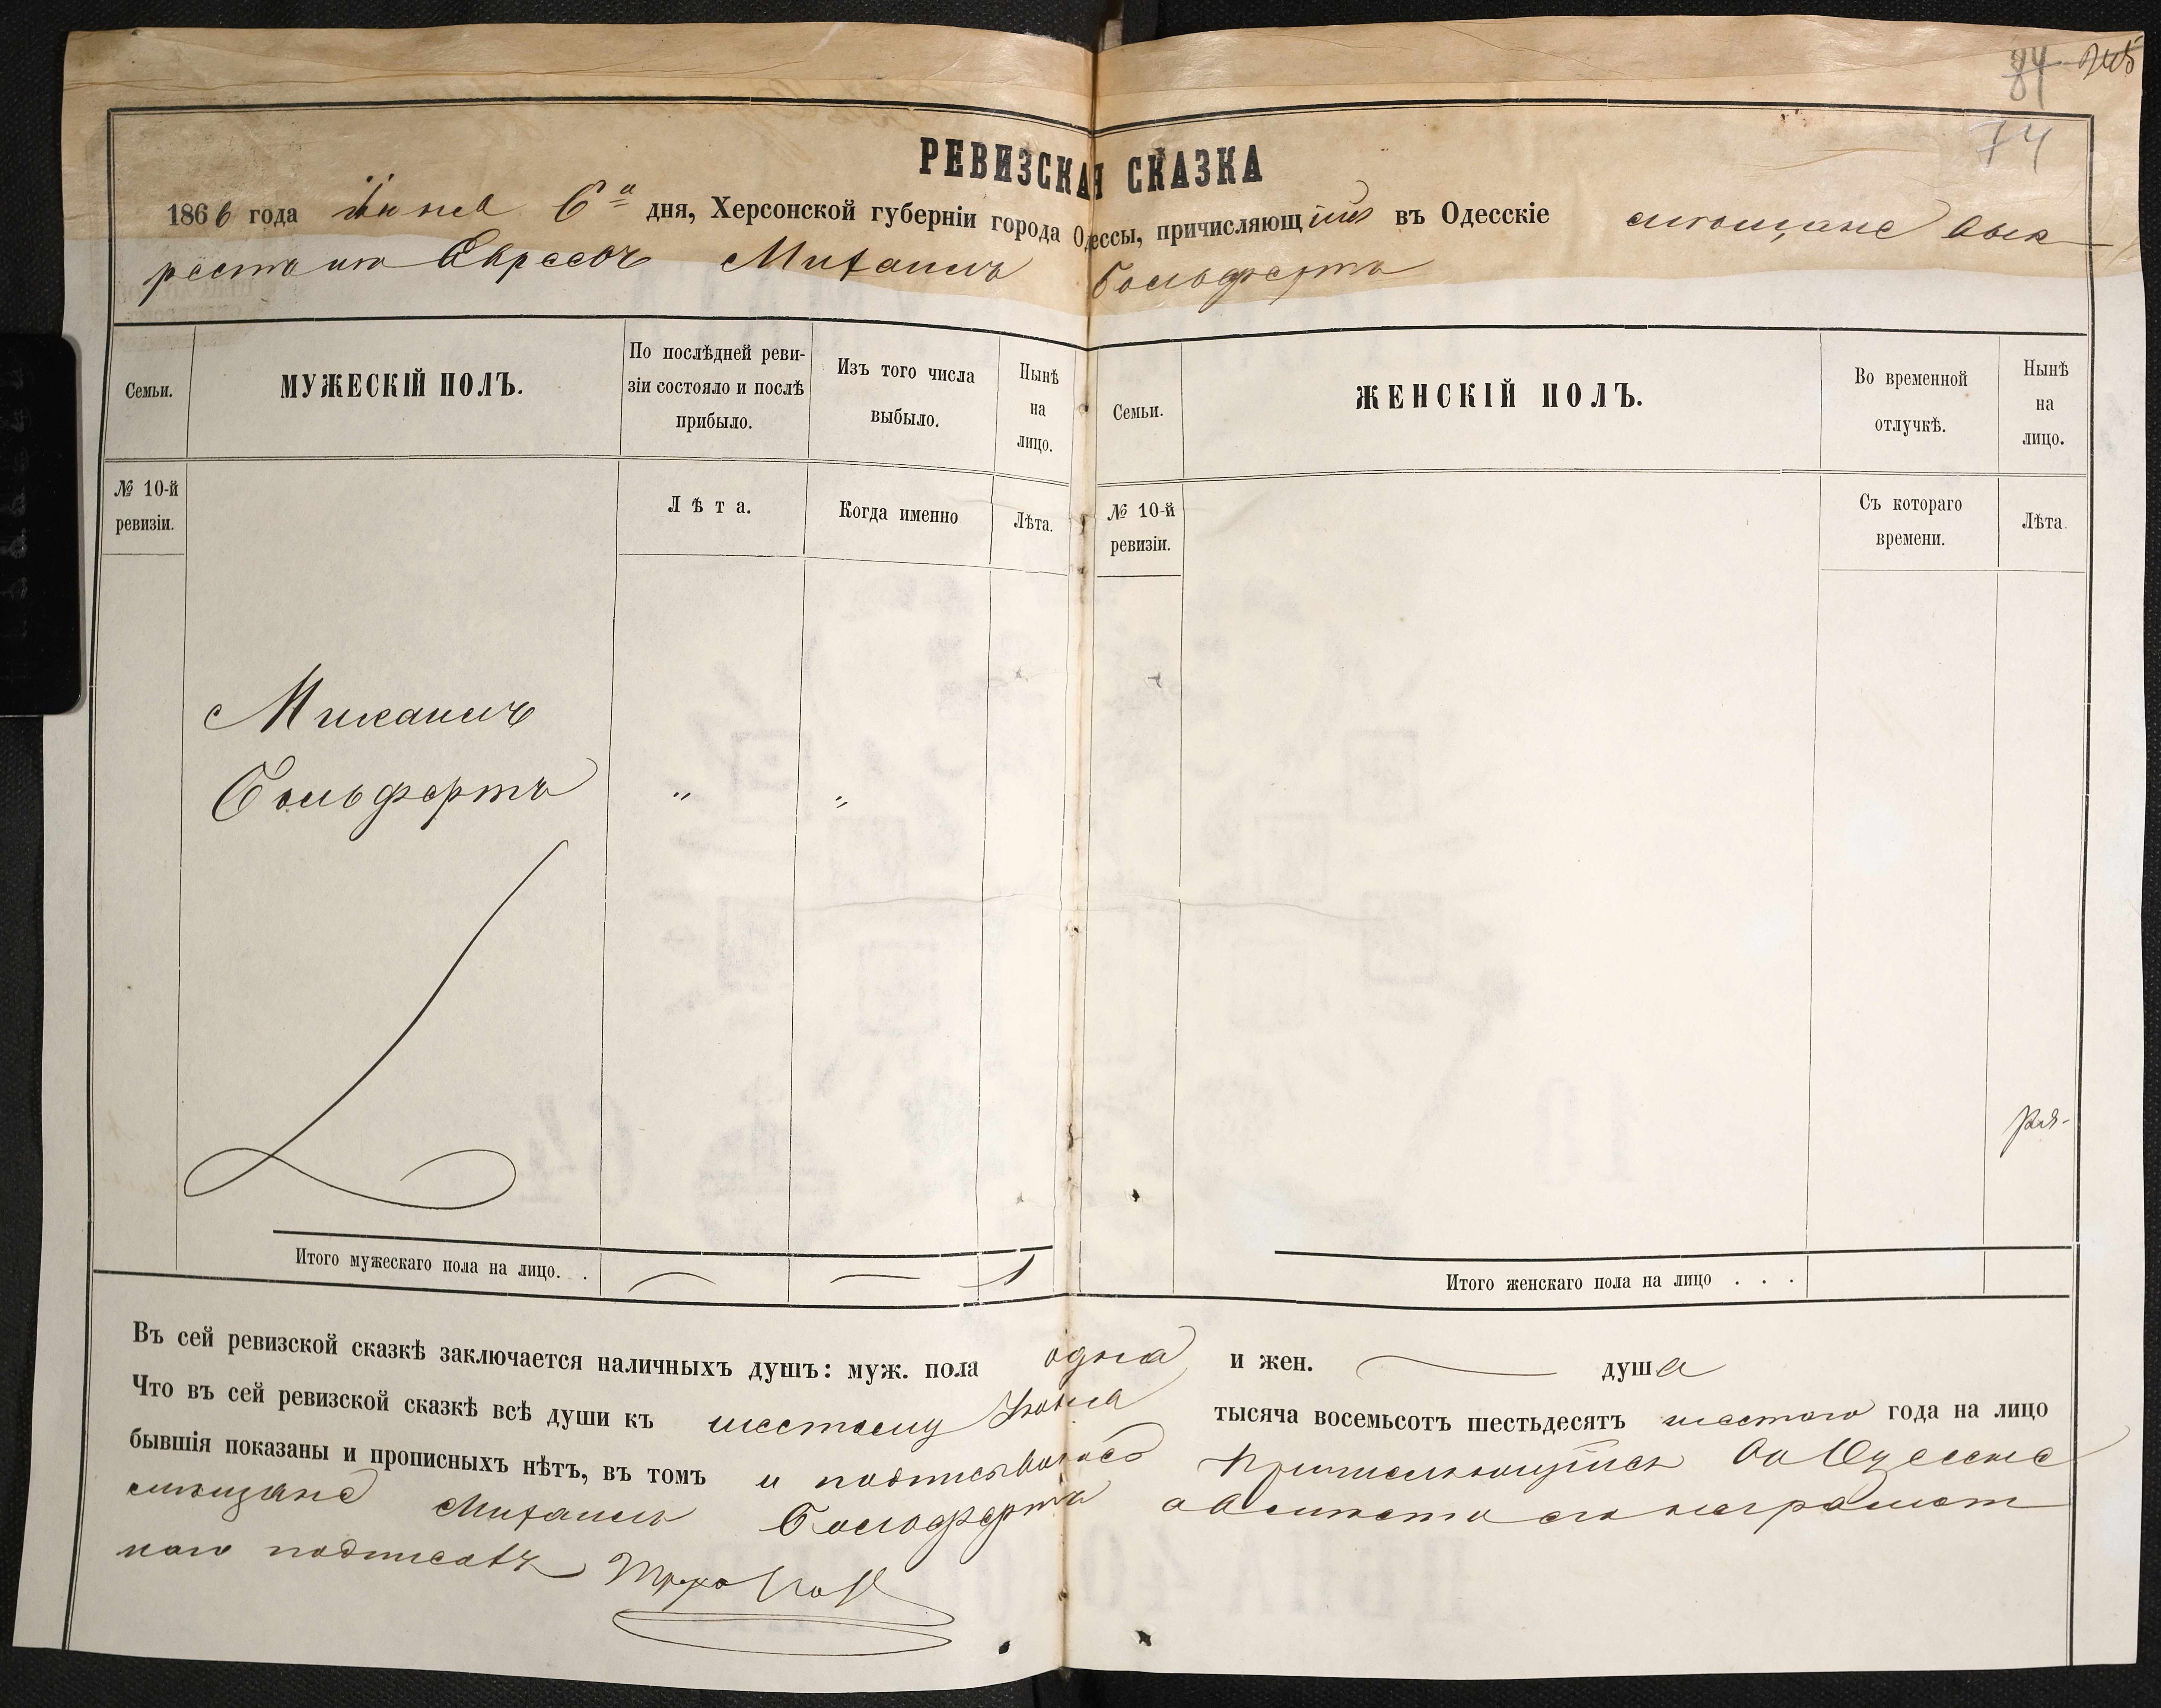 84
74
РЕВИЗСКАЯ СКАЗКА
1866 года Іюня 6го дня, Херсонской губерніи города Одессы, причисляющійся въ Одесскіе мѣщане вык
рестъ изъ Евреевъ Михаилъ Гольфертъ
Семьи.
МУЖЕСКІЙ ПОЛЪ.
По послѣдней реви-
зіи состояло и послѣ
прибыло.
Изъ того числа
выбыло.
Нынѣ
на
лицо.
Семьи.
ЖЕНСКІЙ ПОЛЪ.
Во временной
отлучкѣ.
Нынѣ
на
лицо.
№ 10-й
ревизіи.
Лѣта.
Когда именно
Лѣта.
№ 10-й
ревизіи.
Съ котораго
времени.
Лѣта.
Михаилъ
Гольфертъ " "
Итого мужескаго пола на лицо. . — — 1
Итого женскаго пола на лицо . . .
Въ сей ревизской сказкѣ заключается наличныхъ душъ: муж. пола одна и жен. — душа
Что въ сей ревизской сказкѣ всѣ души къ шестому Іюня тысяча восемьсотъ шестьдесятъ шестаго года на лицо
бывшія показаны и прописныхъ нѣтъ, въ томъ и подписываюсь Причисляющійся въ Одесскіе
мѣщане Михаилъ Гольфертъ а вмѣсто его неграмот
наго подписалъ